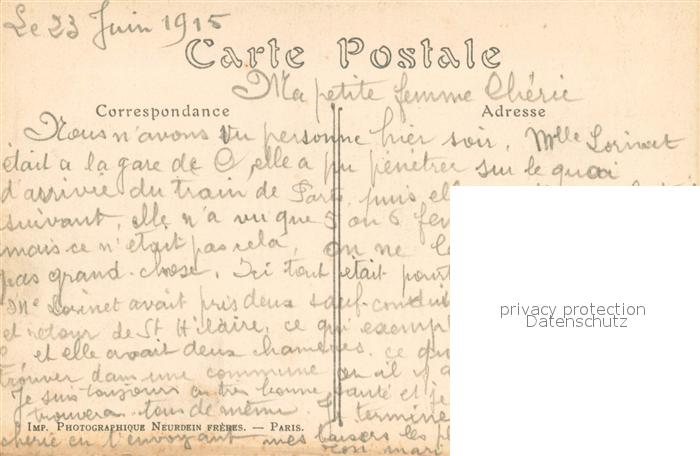 Le 23 Juin 1915
Carte Postale
Ma petite femme Chérie
Correspondance
Adresse
Nous n'avons vu personne hier soir. Mlle Lorinet
était à la gare de C, elle a pu pénétrer sur le quai
d'arrivée du train de Paris, puis
suivant, elle n'a vu que 5 ou 6
mais ce n'était pas cela, on ne
pas grand-chose. Ici tout était
Me Lorinet avait pris deux sauf-conduits
et retour de St Hilaire, ce qui
et elle avait deux chambres, ce
trouver dans une commune où il y a
Je suis toujours en très bonne santé et je
trouvera tout de même. Je termine
IMP. PHOTOGRAPHIQUE NEURDEIN FRÈRES. — PARIS.
chérie en t'envoyant mes baisers les
ton mari
privacy protection
Datenschutz